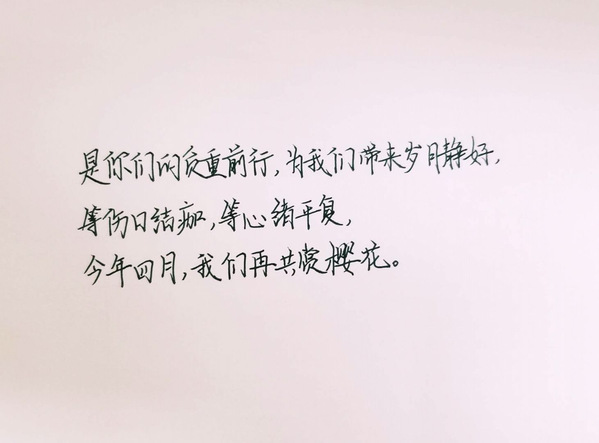 是你们的负重前行,为我们带来岁月静好,
等伤口结痂,等心绪平复,
今年四月,我们再共赏樱花。